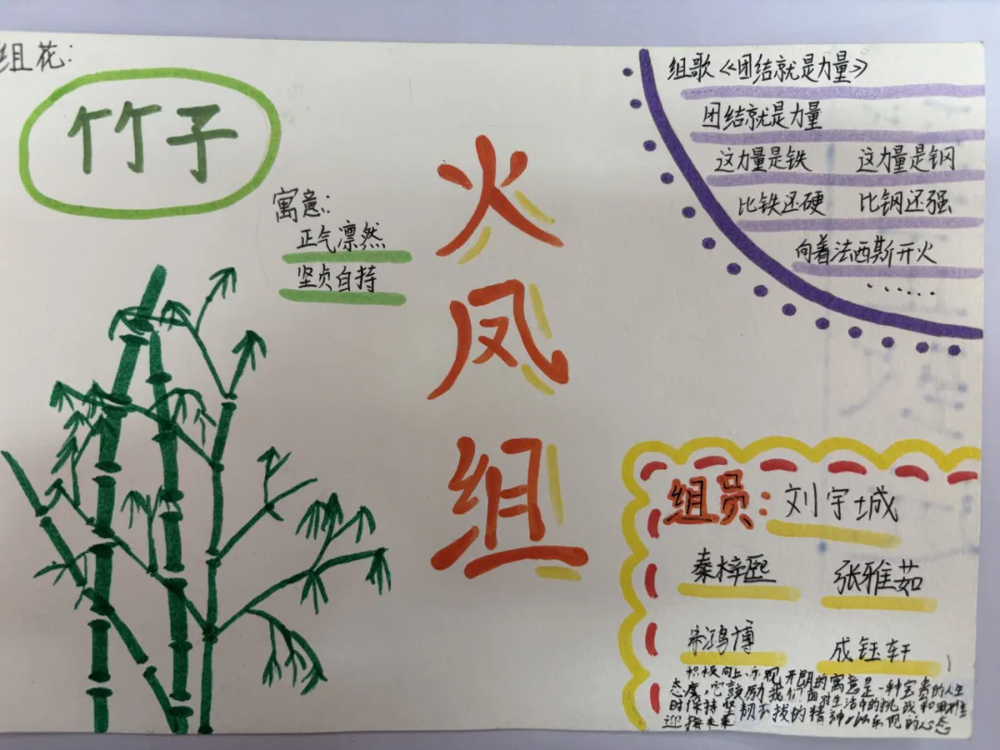 组花:
竹子
寓意:
正气凛然
坚贞自持
火凤组
组歌《团结就是力量》
团结就是力量
这力量是铁 这力量是钢
比铁还硬 比钢还强
向着法西斯开火
……
组员:刘宇城
秦梓熙 张雅茹
鸿博 成钰轩
积极向上、乐观开朗的寓意是一种宝贵的人生
态度,它鼓励我们面对生活中的挑战和困难
时保持坚韧不拔的精神,以乐观的心态
迎接未来